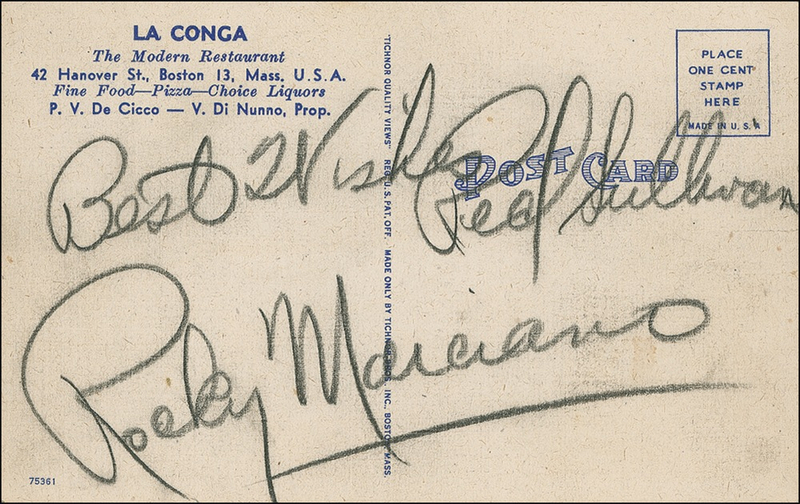 LA CONGA
The Modern Restaurant
42 Hanover St., Boston 13, Mass. U.S.A.
Fine Food—Pizza—Choice Liquors
P. V. De Cicco — V. Di Nunno, Prop.
PLACE
ONE CENT
STAMP
HERE
MADE IN U. S. A
POST CARD
Best Wishes Red Sullivan
Rocky Marciano
"TICHNOR QUALITY VIEWS" REG. U. S. PAT. OFF. MADE ONLY BY TICHNOR BROS. INC., BOSTON, MASS.
75361